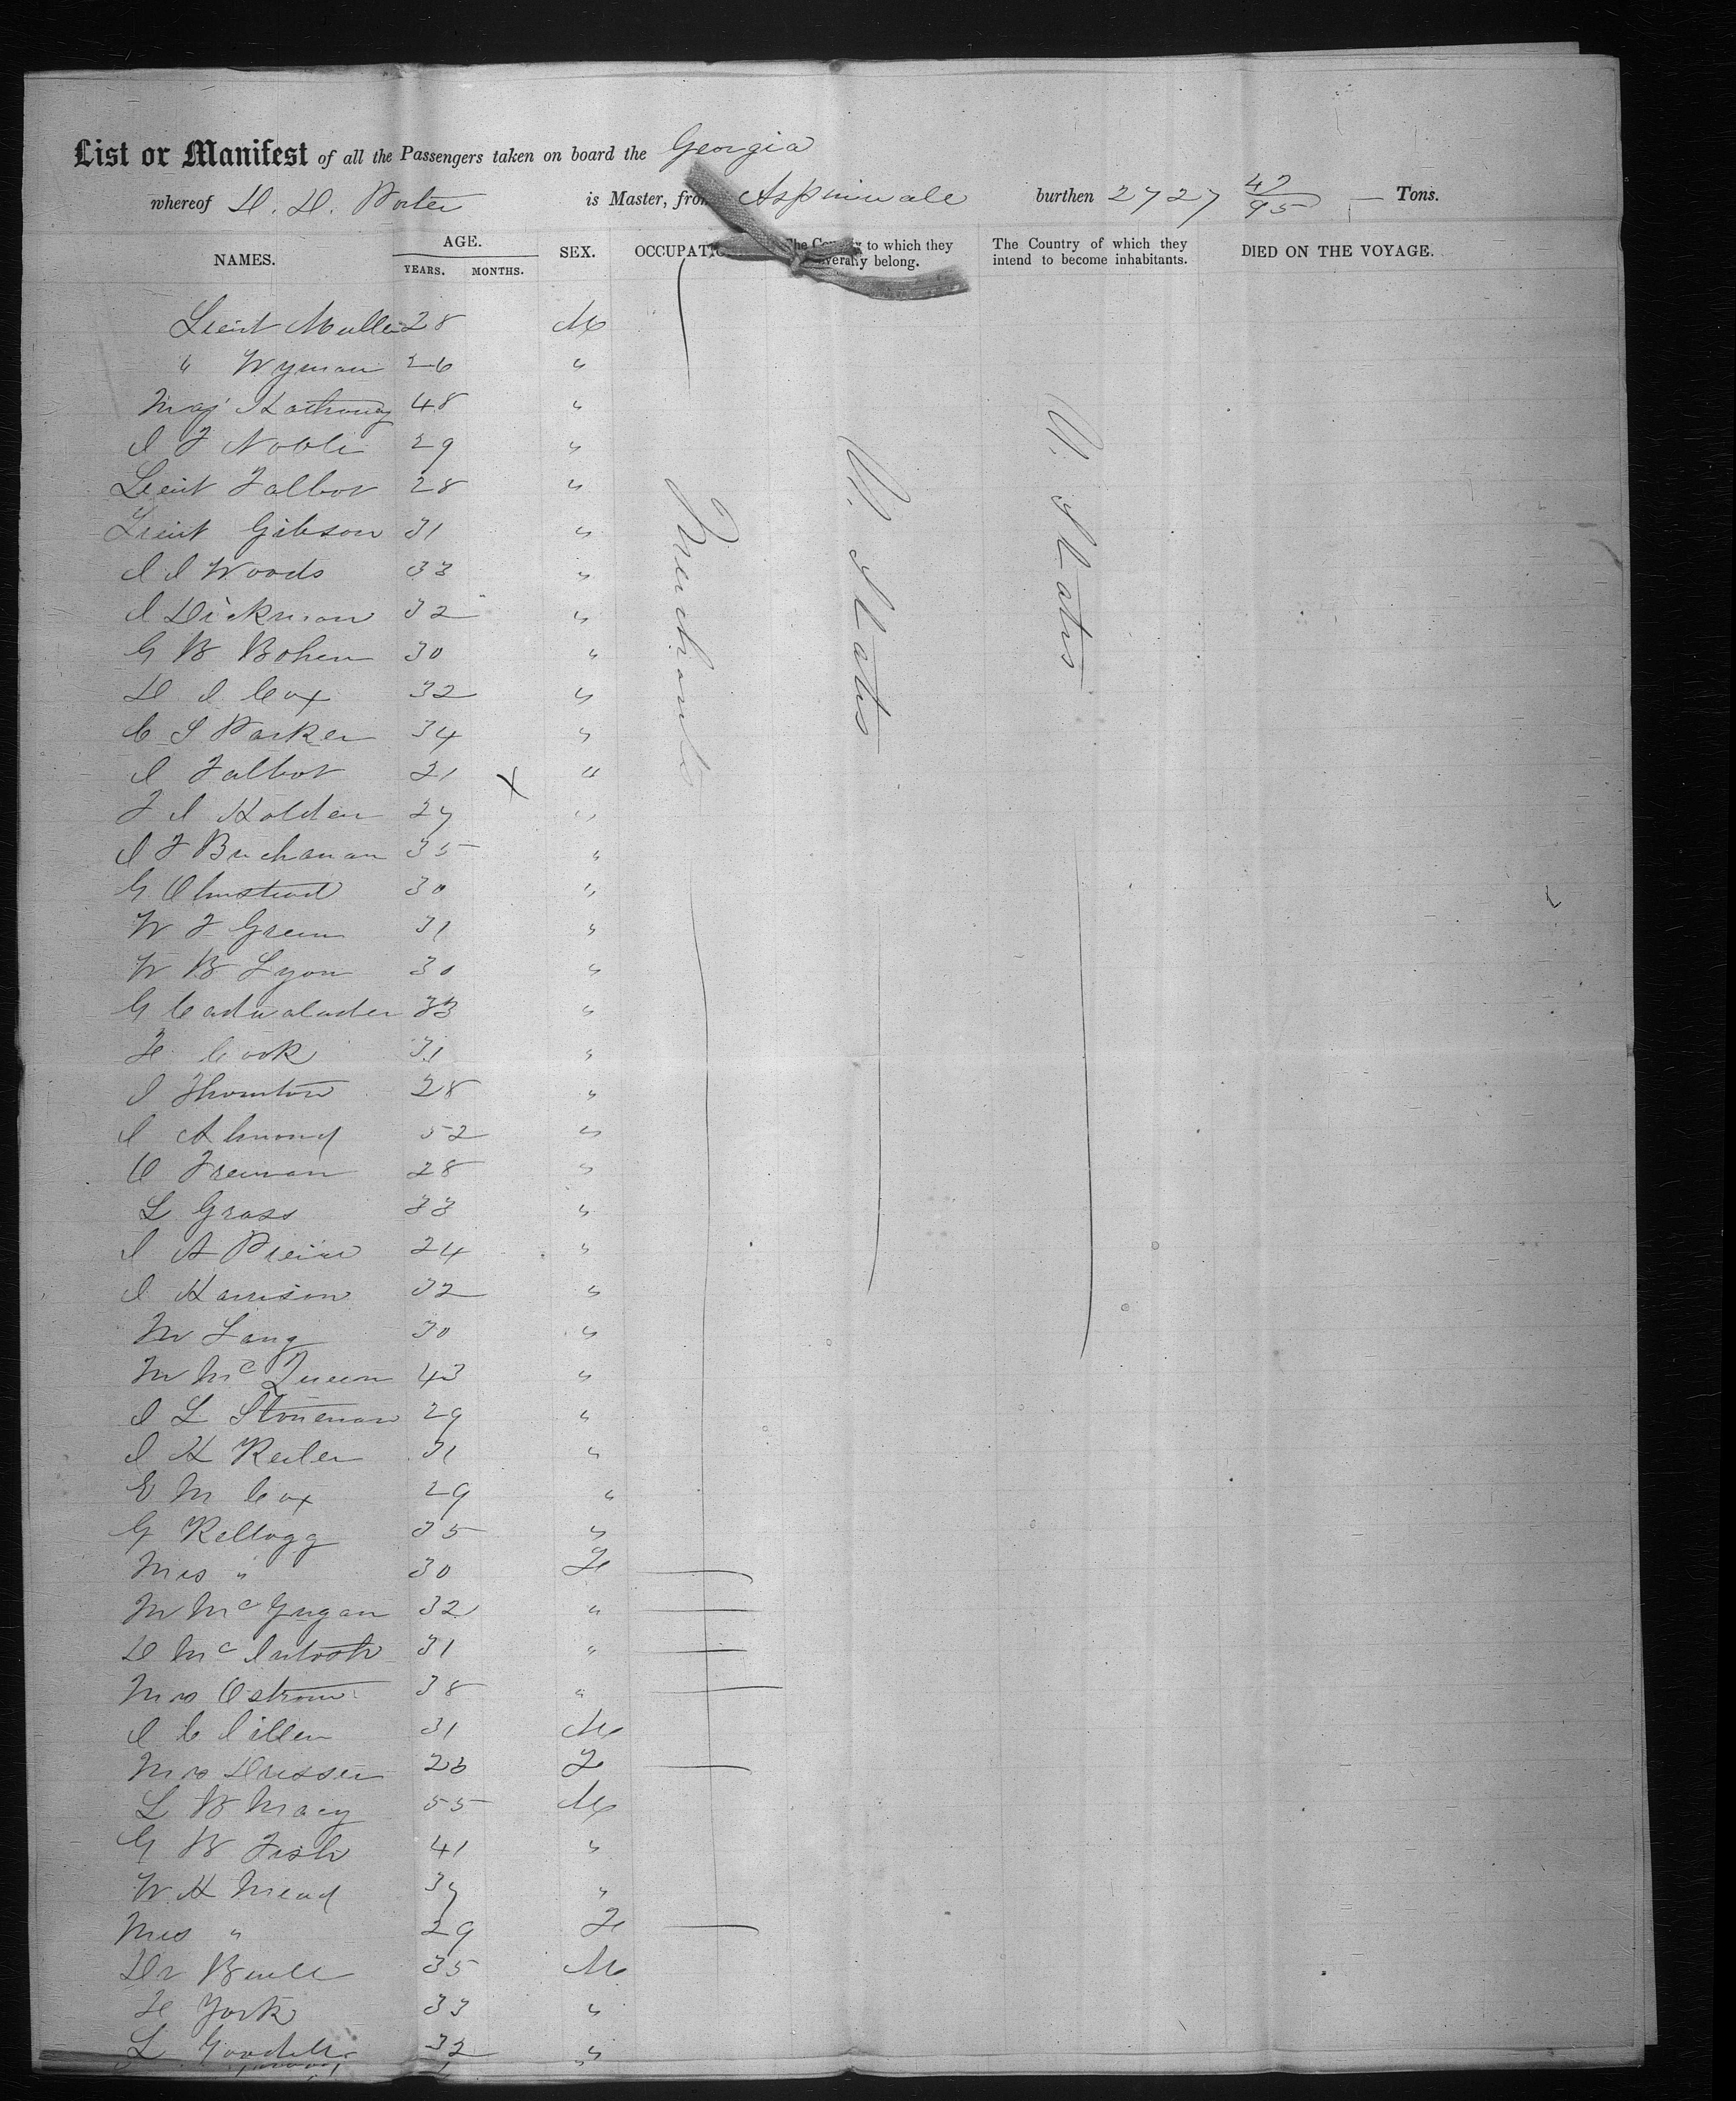 List or Manifest of all the Passengers taken on board the Georgia
whereof D. D. Porter is Master, from Aspinwall burthen 2727 42/95 Tons.
NAMES. AGE. YEARS. MONTHS. SEX. OCCUPATIO The Country to which they severally belong. The Country of which they intend to become inhabitants. DIED ON THE VOYAGE.
Merchants
U. States
U. States
Lieut Muller 28 M
" Wyman 26 "
Maj Hathaway 48 "
I F Noble 29 "
Lieut Talbot 28 "
Lieut Gibson 31 "
I I Woods 33 "
I Dickman 32 "
G B Bohen 30 "
D I Cox 32 "
C S Parker 34 "
I Talbot 21 X "
F I Holden 27 "
I F Buchanan 35 "
G Olmstead 30 "
W F Green 31 "
W B Lyon 30 "
G Cadwalader 33 "
F Cook 31 "
I Thornton 28 "
I Almond 52 "
O Freeman 28 "
L Grass 33 "
I A 24 "
I Harrison 32 "
M Lang 30 "
M McQueen 43 "
I L Stoneman 29 "
I H 31 "
E M Cox 29 "
G Kellogg 35 "
Mrs " 30 Fe
M 32 "
D McIntosh 31 "
Mrs Ostrom 38 "
I C 31 M
Mrs Dresser 23 Fe
L B Macy 55 M
G B Fish 41 "
W H Mead 37 "
Mrs " 29 Fe
Dr 35 M
F York 33 "
L 32 "